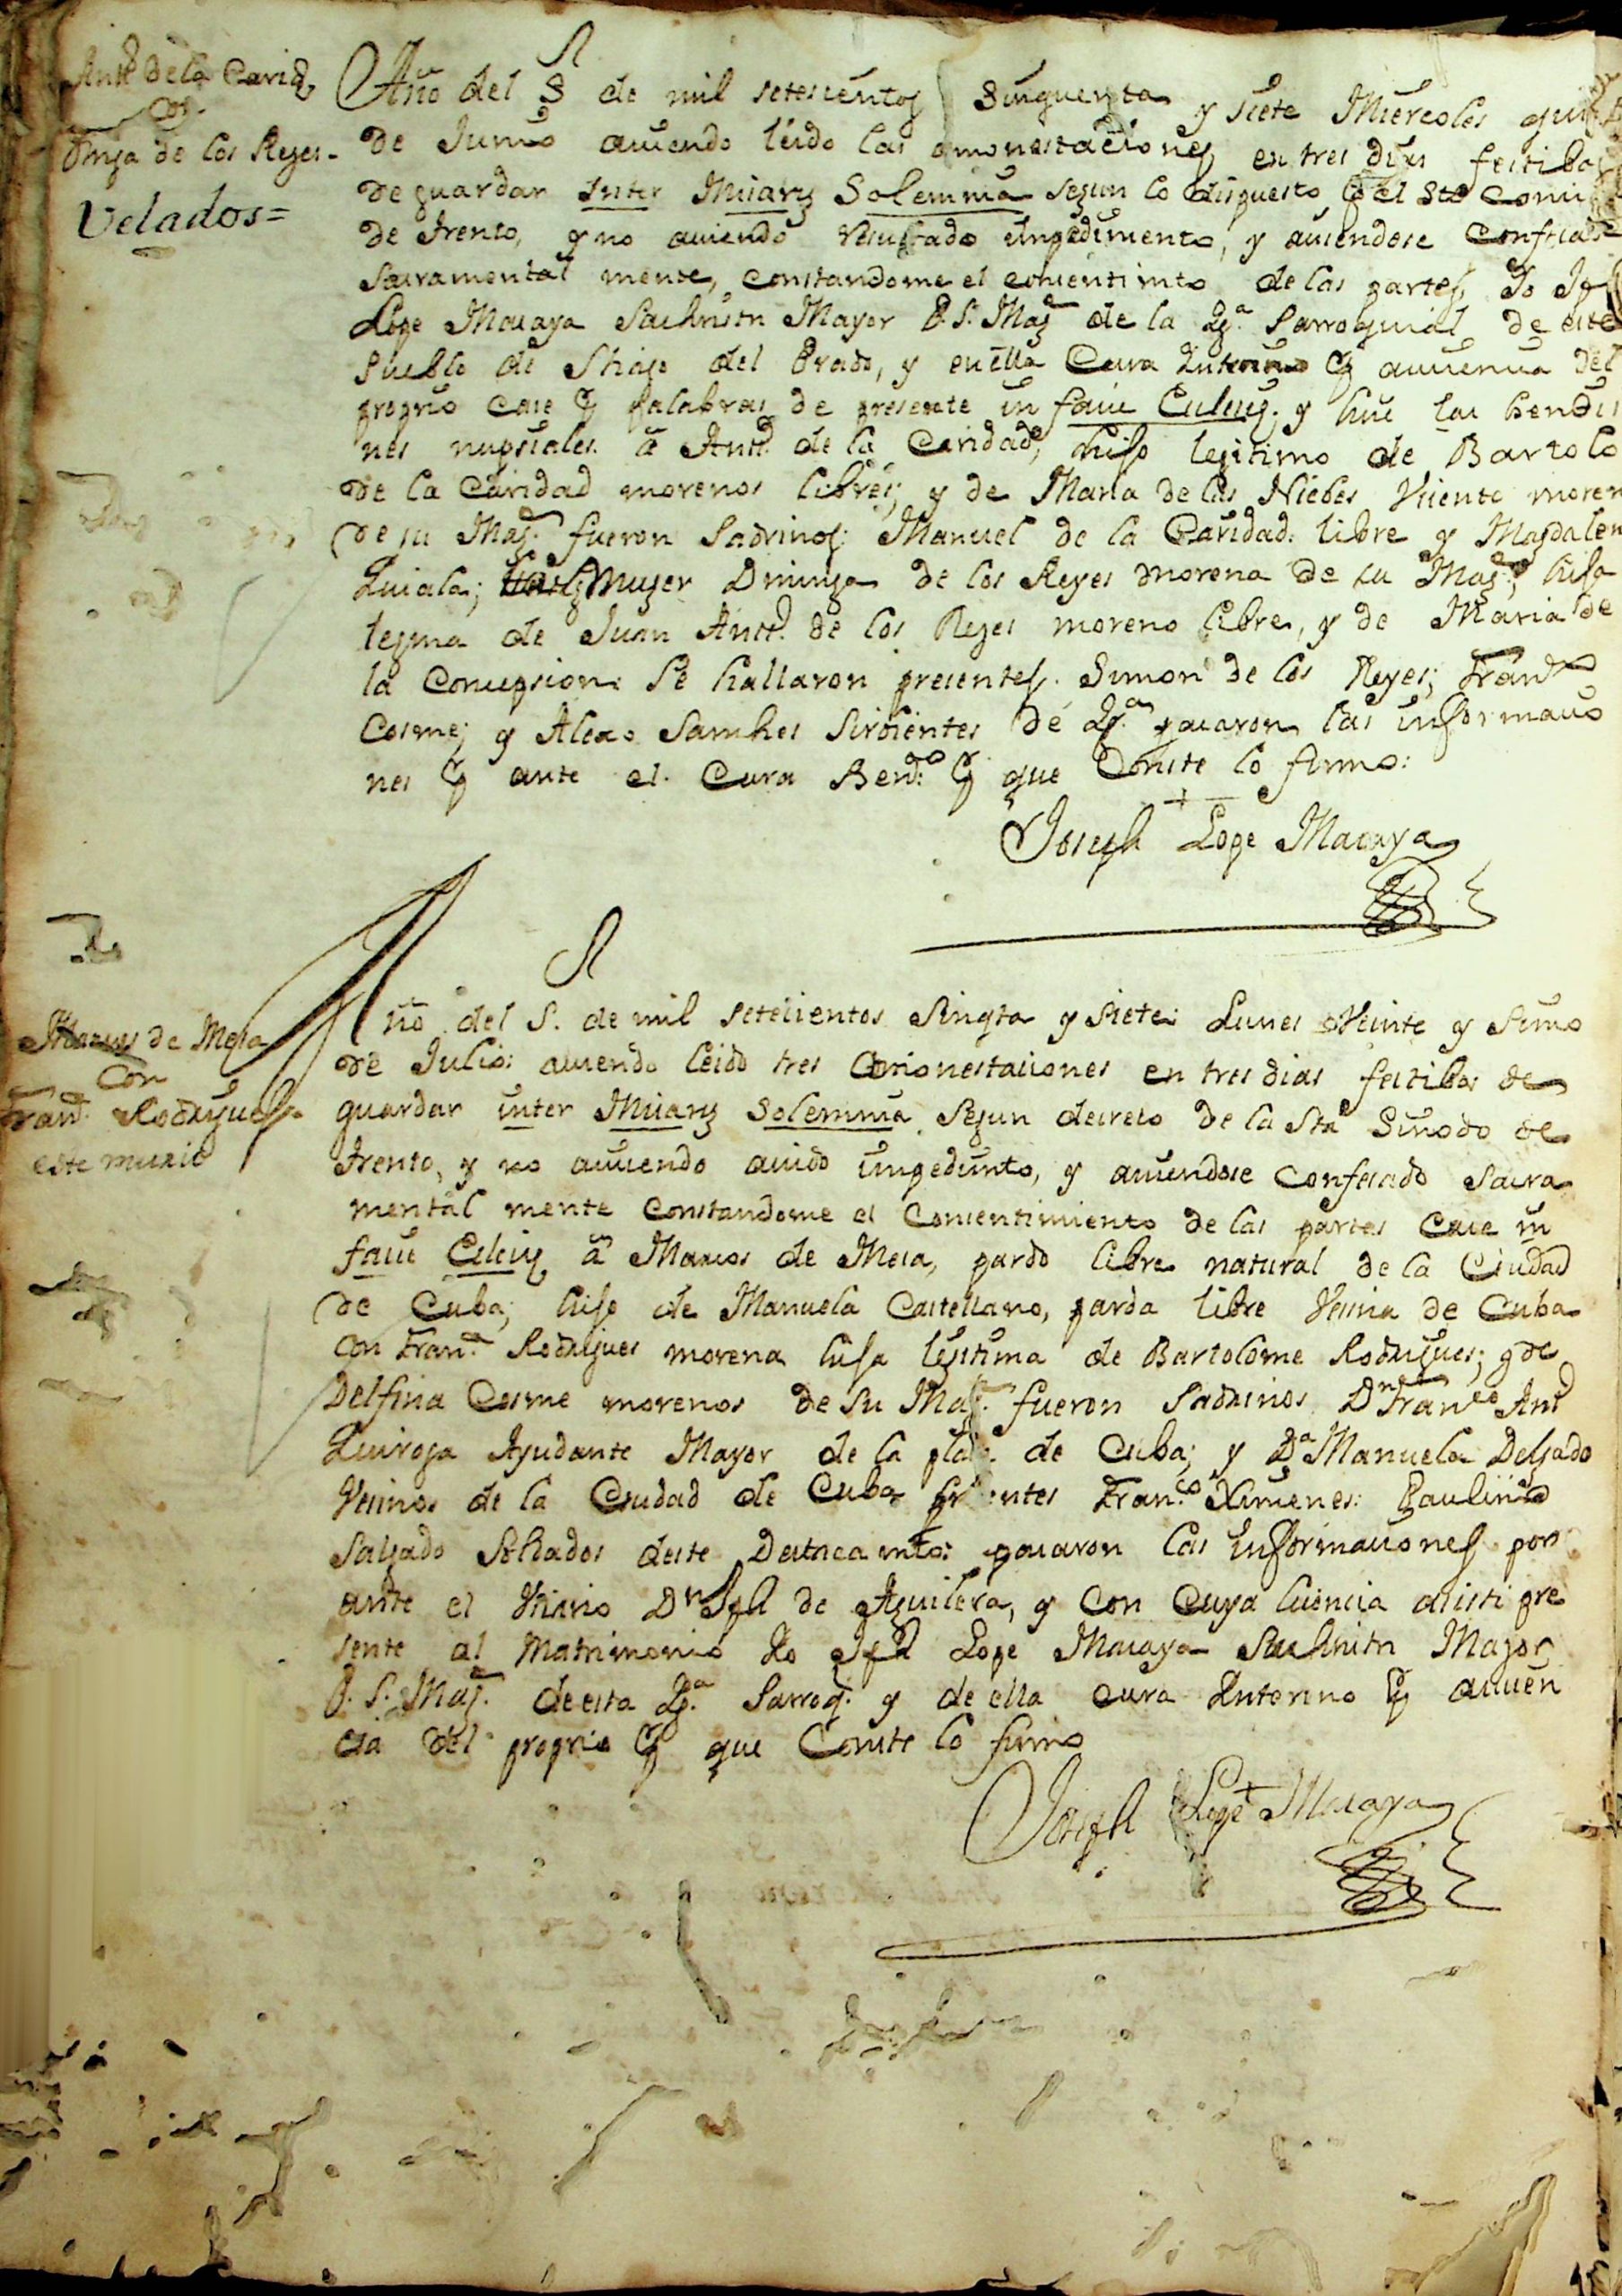 Antt.o de la Carid.
Con
Dmga de los Reyes.
Velados=
Año del S de mil setescientos Sinquenta y siete Miercoles
de Junio auiendo leido las amonestaciones en tres dias festibos
de guardar inter Misarũ Solemnia segun lo dispuesto el Sto Conci
de trento, y no auiendo resultado impedimento, y auiendose Confesado
Sacramental mente, constandome el consentimto de las partes, Yo Jph
Lope Macaya Sachristn Mayor P. S. Mag de la Ygª Parroquial de este
Pueblo de Sthiago del Prado, y en ella Cura Interino auciencia del
proprio case palabras de presente in facie Eclecię. y hise las bendis
nes nupsiales a Antto de la Caridad, hijo legitimo de Bartolo
de la Caridad morenos libres, y de Maria de las Niebes moren
de su Mag. fueron Padrinos: Manuel de la Caridad. libre y Magdalen
Quiala; Muger Dminga de los Reyes morena de su Mag. hija
legma de Juan Antto de los Reyes moreno libre, y de Maria de
la Concepsion: Se hallaron presentes. Simon de los Reyes; Franco
Cosme; y Alexo Sanches Sirbientes de Ygª pasaron las informacio
nes ante el Cura Bendo que Conste lo firmo:
Joseph Lope Macaya
Marcos de Mesa
Con
Franca Rodrigues
este murio
Año del S. de mil setecientos Sinqta y siete: Lunes Veinte y Sinco
de Julio: auiendo leido tres amonestaciones en tres dias festibos de
guardar inter Misarũ Solemnia Segun decreto de la Sta Sinodo de
trento, y no auiendo auido impedimto, y auiendose confesado Sacra
mental mente constandome el Consentimiento de las partes Case in
facie Eclecię a Marcos de Mesa, pardo libre natural de la Ciudad
de Cuba; hijo de Manuela Castellano, parda libre Vesina de Cuba
con Franca Rodrigues morena hija legitima de Bartolome Rodrigues; y de
Delfina Cosme morenos de Su Mag. fueron Padrinos Dn Franco Anto
Quiroga Ayudante Mayor de la plasa de Cuba; y Dª Manuela Delgado
Vesinos de la Ciudad de Cuba presentes Franco Ximenes: Paulino
Salgado Soldados deste Destacamto: pasaron las informaciones por
ante el Vicario Dn Jph de Aguilera, y con cuya licencia asisti pre
sente al Matrimonio Yo Jph Lope Macaya Sachristn Mayor
P. S. Mag. de esta Ygª Parroq. y de ella cura Interino aucien
cia del proprio que Conste lo firmo
Joseph Lope Macaya